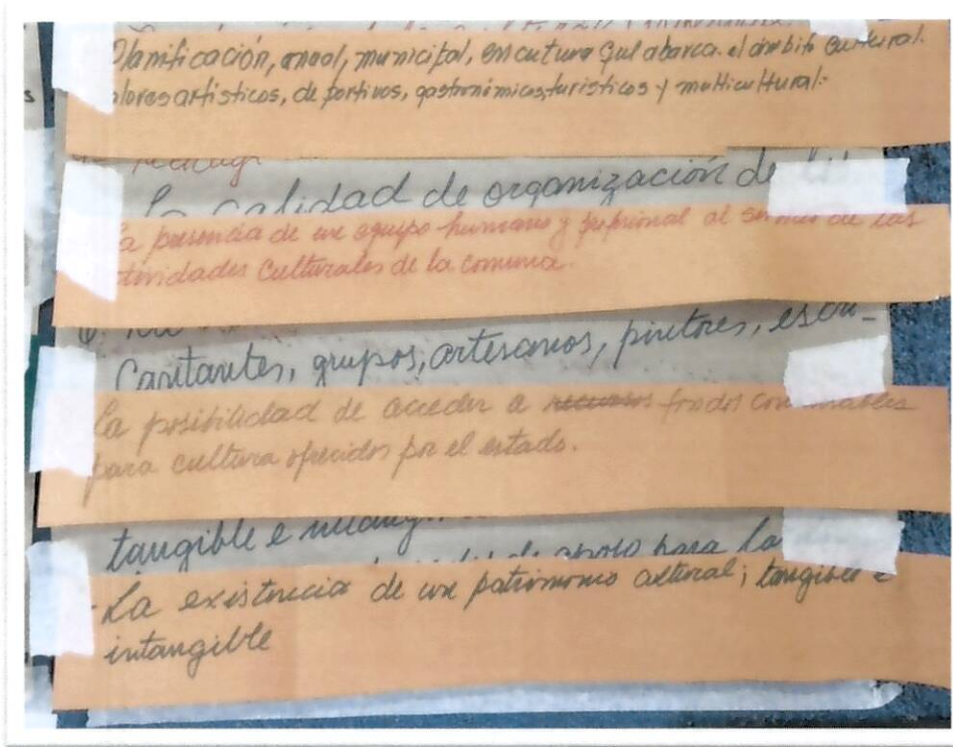 Planificación, anual, municipal, en cultura que abarca el ámbito cultural.
valores artísticos, deportivos, gastronómicos, turísticos y multicultural.
La calidad de organización de
La presencia de un equipo humano y profesional al servicio de las
actividades culturales de la comuna.
Cantantes, grupos, artesanos, pintores, escri-
La posibilidad de acceder a recursos fondos concursables
para cultura ofrecidos por el estado.
tangible e
de apoyo para la
-La existencia de un patrimonio cultural; tangible e
intangible